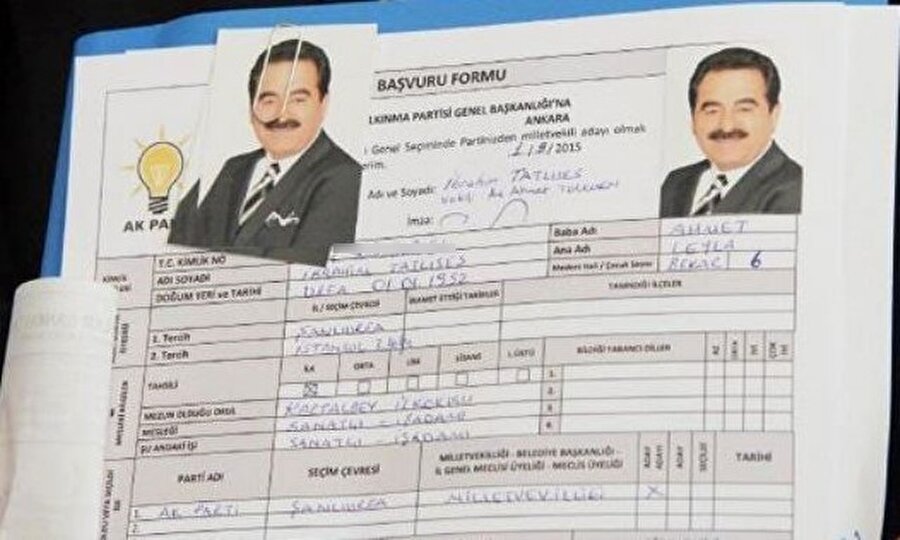 BAŞVURU FORMU
LKINMA PARTİSİ GENEL BAŞKANLIĞI'NA
ANKARA
Genel Seçiminde Partinizden milletvekili adayı olmak
erim.
1/9/2015
Adı ve Soyadı: İbrahim TATLISES
Ahmet
İmza:
AK PA
T.C. KİMLİK NO
ADI SOYADI İBRAHİM TATLISES
DOĞUM YERİ ve TARİHİ URFA 01.01.1952
Baba Adı AHMET
Ana Adı LEYLA
Medeni Hali / Çocuk Sayısı BEKAR 6
İL/ SEÇİM ÇEVRESİ İKAMET ETTİĞİ TARİHLER TANINDIĞI İLÇELER
1. Tercih ŞANLIURFA
2. Tercih İSTANBUL
TAHSİLİ İLK ORTA LİSE LİSANS L. ÜSTÜ BİLDİĞİ YABANCI DİLLER AZ ORTA İYİ ÇOK İYİ
1.
2.
3.
4.
MEZUN OLDUĞU OKUL İLKOKULU
MESLEĞİ SANATÇI - İŞADAMI
ŞU ANDAKİ İŞİ SANATÇI - İŞADAMI
PARTİ ADI SEÇİM ÇEVRESİ MİLLETVEKİLLİĞİ - BELEDİYE BAŞKANLIĞI -
İL GENEL MECLİSİ ÜYELİĞİ - MECLİS ÜYELİĞİ ADAY ADAYI ADAY SEÇİLDİ TARİHİ
1. AK PARTİ ŞANLIURFA MİLLETVEKİLLİĞİ X
2.